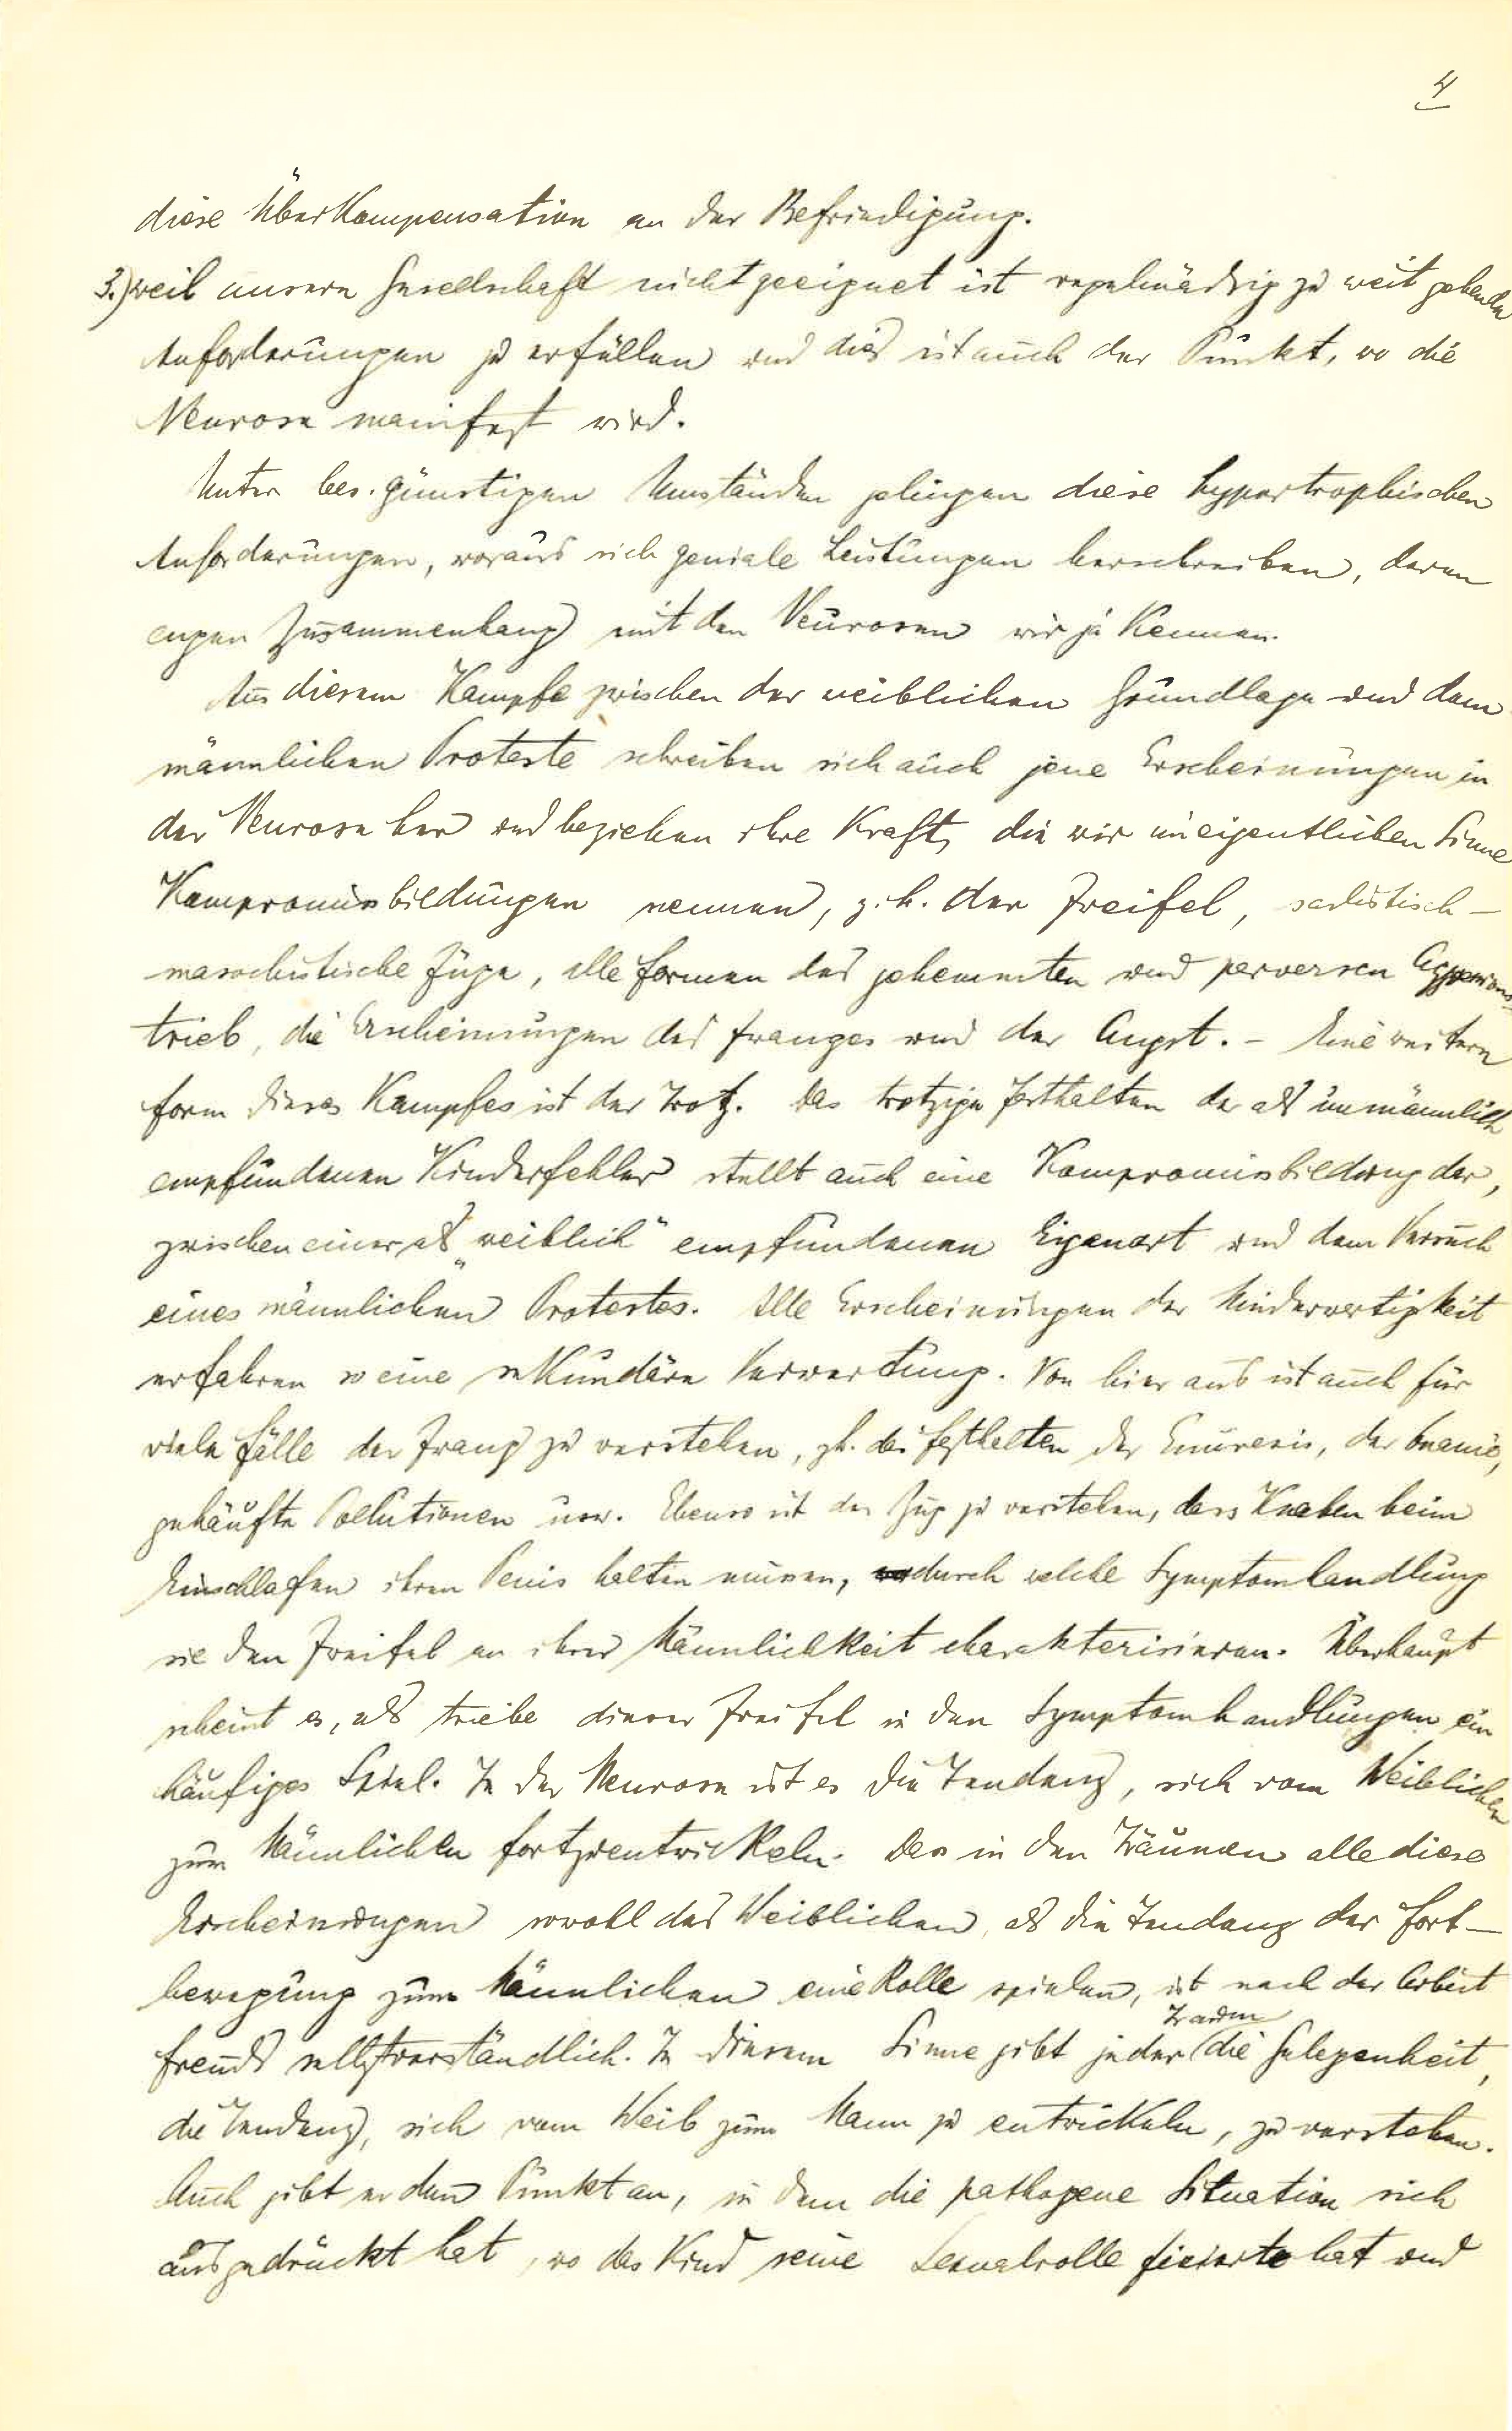 4
diese Überkompensation an der Befriedigung.
3.) weil unsere Gesellschaft nicht geeignet ist regelmässig zu weit gehende
Anforderungen zu erfüllen und dies ist auch der Punkt, wo die
Neurose manifest wird.
Unter bes. günstigen Umständen gelingen diese hypertrophischen
Anforderungen, woraus sich geniale Leistungen herschreiben, deren
engen Zusammenhang mit den Neurosen wir ja kennen.
Aus diesem Kampfe zwischen der weiblichen Grundlage und dem
männlichen Proteste schreiben sich auch jene Erscheinungen in
der Neurose her und beziehen ihre Kraft, die wir im eigentlichen Sinne
Kompromissbildungen nennen, z.b. der Zweifel, sadistisch-
masochistische Züge, alle Formen des gehemmten und perversen Aggressions-
trieb, die Erscheinungen des Zwanges und der Angst. – Eine weitere
Form dieses Kampfes ist der Trotz. Das trotzige Festhalten der als unmännlich
empfundenen Kinderfehler stellt auch eine Kompromissbildung dar,
zwischen einer als „weiblich“ empfundenen Eigenart und dem Versuch
eines männlichen Protestes. Alle Erscheinungen der Minderwertigkeit
erfahren so eine sekundäre Verwertung. Von hier aus ist auch für
viele Fälle der Zwang zu verstehen, zb. das Festhalten der Enuresis, der Onanie,
gehäufte Pollutionen usw. Ebenso ist der Zug zu verstehen, dass Knaben beim
Einschlafen ihren Penis halten müssen, durch welche Symptomhandlung
sie den Zweifel an ihrer Männlichkeit charakterisieren. Überhaupt
scheint es, als triebe dieser Zweifel in den Symptomhandlungen ein
häufiges Spiel. In der Neurose ist es die Tendenz, sich vom Weiblichen
zum Männlichen fortzuentwickeln. Dass in den Träumen alle diese
Erscheinungen sowohl des Weiblichen, als die Tendenz der Fort-
bewegung zum Männlichen eine Rolle spielen, ist nach der Arbeit
Freuds selbstverständlich. In diesem Sinne gibt jeder Traum die Gelegenheit,
die Tendenz, sich vom Weib zum Mann zu entwickeln, zu verstehen.
Auch gibt er den Punkt an, in dem die pathogene Situation sich
ausgedrückt hat, wo das Kind seine Sexualrolle fixierte hat und